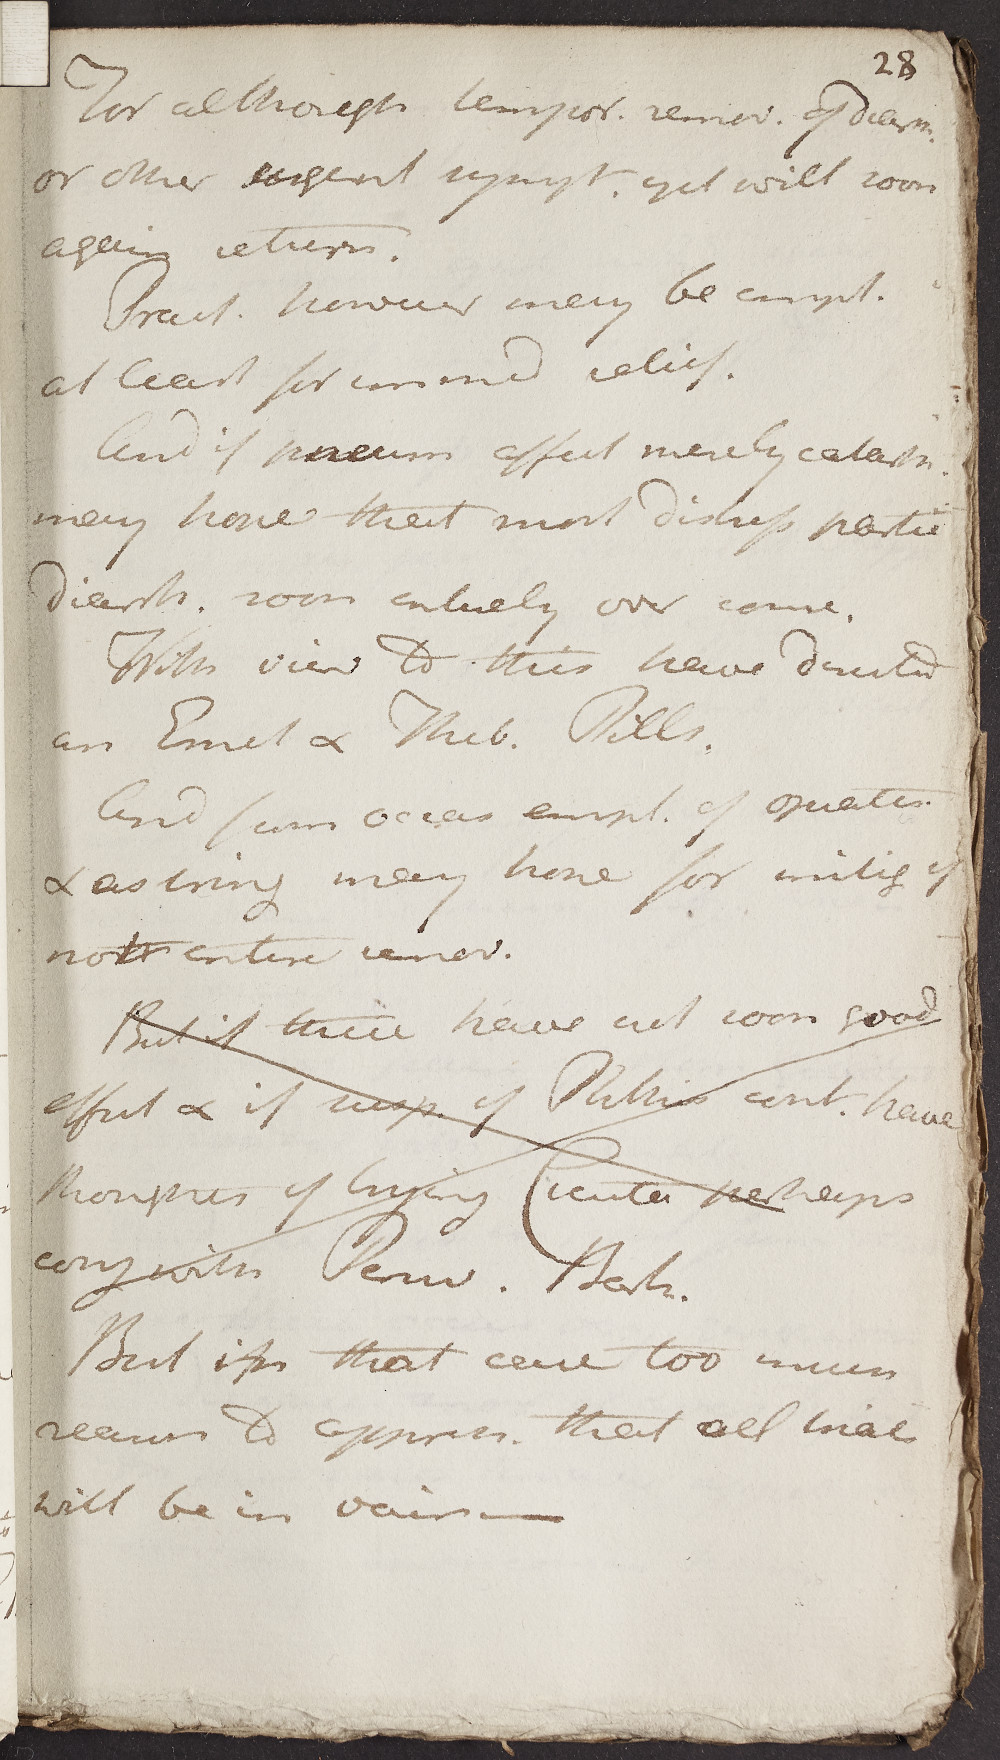 28
For although tempor. remov. of diarrh.
or other urgent sympt. yet will soon
again return.
Pract. however may be empl.
at least for immed relief.
And if pneum affect merely catarrh.
may hope that most distress partic
diarrh. soon entirely over come.
With view to this have directed
an Emet & Theb. Pills.
And from occas empl. of opiates
& astring may hope for mitig if
not entire remov.
But if these have not soon good
effect & if susp. of Phthis cont. have
thoughts of trying Cicuta perhaps
conj with Peruv. Bark.
But in that case too much
reason to appreh. that all trials
will be in vain —